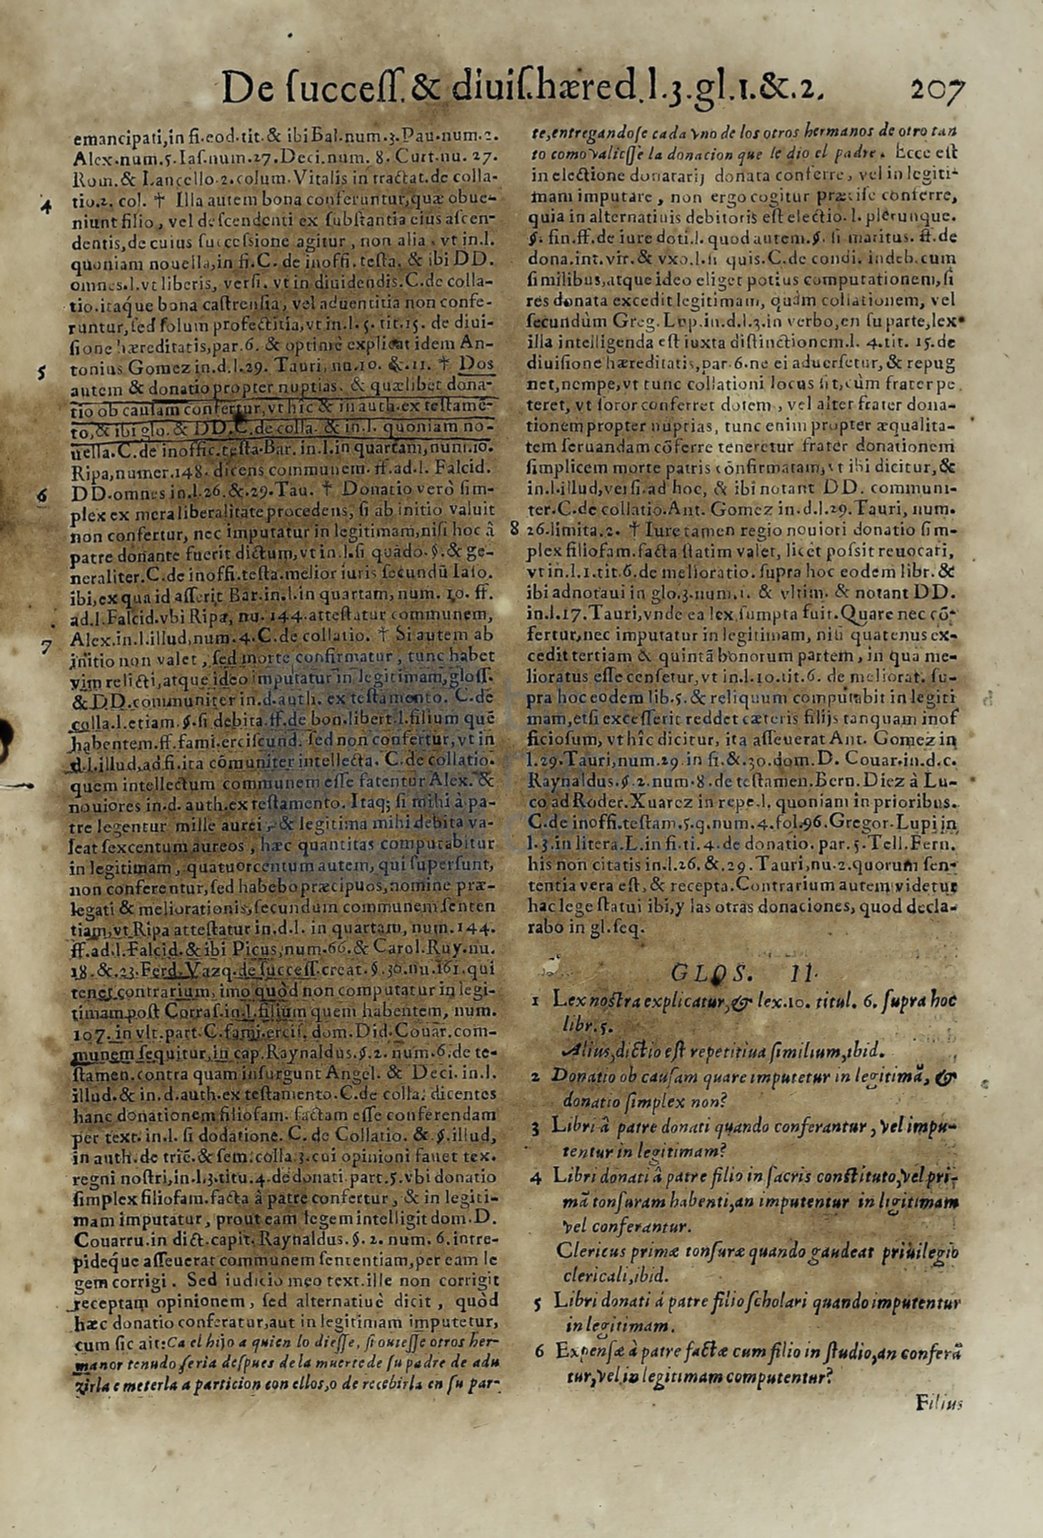 De ſucceſſ. & diuiſ. hæred. l. 3. gl. 1. &. 2. 207
emancipati, in fi. eod. tit. & ibi Bal. num. 3. Pau. num. 2.
Alex. num. 5. Iaſ. num. 27. Deci. num. 8. Curt. nu. 27.
Rom. & Lancello. 2. colum. Vitalis in tractat. de colla-
4 tio. 2. col. † Illa autem bona conferuntur, quæ obue-
niunt filio, vel deſcendenti ex ſubſtantia eius aſcen-
dentis, de cuius ſucceſsione agitur, non alia, vt in. l.
quoniam nouella, in fi. C. de inoffi. teſta. & ibi DD.
omnes. l. vt liberis, verſi. vt in diuidendis. C. de colla-
tio. itaque bona caſtrenſia, vel aduentitia non confe-
runtur, ſed ſolum profectitia, vt in. l. 5. tit. 15. de diui-
ſione hæreditatis, par. 6. & optimè explicat idem An-
tonius Gomez in. d. l. 29. Tauri, nu. 10. &. 11. † Dos
5 autem & donatio propter nuptias, & quælibet dona-
tio ob cauſam confertur, vt hîc & in auth. ex teſtamẽ-
to, & ibi glo. & DD. C. de colla. & in. l. quoniam no-
uella. C. de inoffic. teſta. Bar. in. l. in quartam, num. 10.
Ripa, numer. 148. dicens communem. ff. ad. l. Falcid.
6 DD. omnes in. l. 26. &. 29. Tau. † Donatio verò ſim-
plex ex mera liberalitate procedens, ſi ab initio valuit
non confertur, nec imputatur in legitimam, niſi hoc à
patre donante fuerit dictum, vt in. l. ſi quãdo. §. & ge-
neraliter. C. de inoffi. teſta. melior iuris ſecundũ Iaſo.
ibi, ex qua id aſſerit Bar. in. l. in quartam, num. 10. ff.
ad. l. Falcid. vbi Ripa, nu. 144. atteſtatur communem,
7 Alex. in. l. illud, num. 4. C. de collatio. † Si autem ab
initio non valet, ſed morte confirmatur, tunc habet
vim relicti, atque ideo imputatur in legitimam, gloſſ.
& DD. communiter in. d. auth. ex teſtamento. C. de
colla. l. etiam. §. ſi debita. ff. de bon. libert. l. filium quẽ
habentem. ff. fami. erciſcund. ſed non confertur, vt in
d. l. illud, ad. fi. ita cõmuniter intellecta. C. de collatio.
quem intellectum communem eſſe fatentur Alex. &
nouiores in. d. auth. ex teſtamento. Itaq; ſi mihi à pa-
tre legentur mille aurei, & legitima mihi debita va-
leat ſexcentum aureos, hæc quantitas computabitur
in legitimam, quatuorcentum autem, qui ſuperſunt,
non conferentur, ſed habebo præcipuos, nomine præ-
legati & meliorationis, ſecundum communem ſenten
tiam, vt Ripa atteſtatur in. d. l. in quartam, num. 144.
ff. ad. l. Falcid. & ibi Picus, num. 66. & Carol. Ruy. nu.
18. &. 23. Ferd. Vazq. de ſucceſſ. creat. §. 30. nu. 161. qui
tenet contrarium, imo quòd non computatur in legi-
timam poſt Corraſ. in. l. filium quem habentem, num.
107. in vlt. part. C. fami. erciſ. dom. Did. Couar. com-
munem ſequitur, in cap. Raynaldus. §. 2. num. 6. de te-
ſtamen. contra quam inſurgunt Angel. & Deci. in. l.
illud. & in. d. auth. ex teſtamento. C. de colla. dicentes
hanc donationem filiofam. factam eſſe conferendam
per text. in. l. ſi dodatione. C. de Collatio. & §. illud,
in auth. de triẽ. & ſem. colla. 3. cui opinioni fauet tex.
regni noſtri, in. l. 3. titu. 4. de donati. part. 5. vbi donatio
ſimplex filiofam. facta à patre confertur, & in legiti-
mam imputatur, prout eam legem intelligit dom. D.
Couarru. in dict. capit. Raynaldus. §. 2. num. 6. intre-
pideque aſſeuerat communem ſententiam, per eam le
gem corrigi. Sed iudicio meo text. ille non corrigit
receptam opinionem, ſed alternatiuè dicit, quòd
hæc donatio conferatur, aut in legitimam imputetur,
cum ſic ait: Ca el hijo a quien lo dieſſe, ſi ouieſſe otros her-
manor tenudo ſeria deſpues de la muerte de ſu padre de adu
zirla e meterla a particion con ellos, o de recebirla en ſu par-
te, entregandoſe cada vno de los otros hermanos de otro tan
to como valieſſe la donacion que le dio el padre. Ecce eſt
in electione donatarij donata conferre, vel in legiti-
mam imputare, non ergo cogitur præciſe conferre,
quia in alternatiuis debitoris eſt electio. l. plerunque.
§. fin. ff. de iure doti. l. quod autem. §. ſi maritus. ff. de
dona. int. vir. & vxo. l. ſi quis. C. de condi. indeb. cum
ſimilibus, atque ideo eliget potius computationem, ſi
res donata excedit legitimam, quàm collationem, vel
ſecundùm Greg. Lop. in. d. l. 3. in verbo, en ſu parte, lex
illa intelligenda eſt iuxta diſtinctionem. l. 4. tit. 15. de
diuiſione hæreditatis, par. 6. ne ei aduerſetur, & repug
net, nempe, vt tunc collationi locus ſit, cùm frater pe
teret, vt ſoror conferret dotem, vel alter frater dona-
tionem propter nuptias, tunc enim propter æqualita-
tem ſeruandam cõferre teneretur frater donationem
ſimplicem morte patris cõnfirmatam, vt ibi dicitur, &
in. l. illud, verſi. ad hoc, & ibi notant DD. communi-
ter. C. de collatio. Ant. Gomez in. d. l. 29. Tauri, num.
8 26. limita. 2. † Iure tamen regio nouiori donatio ſim-
plex filiofam. facta ſtatim valet, licèt poſsit reuocari,
vt in. l. 1. tit. 6. de melioratio. ſupra hoc eodem libr. &
ibi adnotaui in glo. 3. num. 1. & vltim. & notant DD.
in. l. 17. Tauri, vnde ea lex ſumpta fuit. Quare nec cõ-
fertur, nec imputatur in legitimam, niſi quatenus ex-
cedit tertiam & quintã bonorum partem, in qua me-
lioratus eſſe cenſetur, vt in. l. 10. tit. 6. de meliorat. ſu-
pra hoc eodem lib. 5. & reliquum computabit in legiti
mam, etſi exceſſerit reddet cæteris filijs tanquam inof
ficioſum, vt hîc dicitur, ita aſſeuerat Ant. Gomez in
l. 29. Tauri, num. 29. in fi. &. 30. dom. D. Couar. in. d. c.
Raynaldus. §. 2. num. 8. de teſtamen. Bern. Diez à Lu-
co ad Roder. Xuarez in repe. l. quoniam in prioribus.
C. de inoffi. teſtam. 5. q. num. 4. fol. 96. Gregor. Lupi in
l. 3. in litera. L. in fi. ti. 4. de donatio. par. 5. Tell. Fern.
his non citatis in. l. 26. &. 29. Tauri, nu. 2. quorum ſen-
tentia vera eſt, & recepta. Contrarium autem videtur
hac lege ſtatui ibi, y las otras donaciones, quod decla-
rabo in gl. ſeq.
GLOS. II.
1 Lex noſtra explicatur, & lex. 10. titul. 6. ſupra hoc
libr. 5.
Alius, dictio eſt repetitiua ſimilium, ibid.
2 Donatio ob cauſam quare imputetur in legitimã, &
donatio ſimplex non?
3 Libri à patre donati quando conferantur, vel impu-
tentur in legitimam?
4 Libri donati à patre filio in ſacris conſtituto, vel pri-
mã tonſuram habenti, an imputentur in legitimam
vel conferantur.
Clericus primæ tonſuræ quando gaudeat priuilegio
clericali, ibid.
5 Libri donati á patre filio ſcholari quando imputentur
in legitimam.
6 Expenſæ à patre factæ cum filio in ſtudio, an conferã
tur, vel in legitimam computentur?
Filius